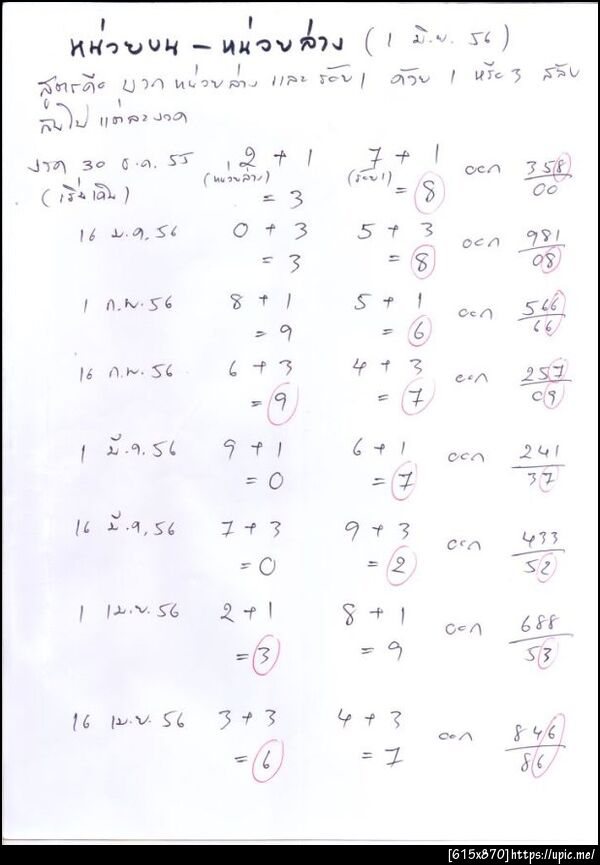 หน่วยบน - หน่วยล่าง (1 มิ.ย. 56)
สูตรคือ บวก หน่วยล่าง และ ร้อย 1 ด้วย 1 หรือ 3 สลับ
กันไป แต่ละงวด
งวด 30 ธ.ค. 55 2 + 1 7 + 1 ออก 358
(เริ่มเดิน) (หน่วยล่าง) = 3 (ร้อย1) = 8 00
16 ม.ค, 56 0 + 3 5 + 3 ออก 981
= 3 = 8 08
1 ก.พ. 56 8 + 1 5 + 1 ออก 566
= 9 = 6 66
16 ก.พ. 56 6 + 3 4 + 3 ออก 257
= 9 = 7 09
1 มี.ค. 56 9 + 1 6 + 1 ออก 241
= 0 = 7 37
16 มี.ค, 56 7 + 3 9 + 3 ออก 433
= 0 = 2 52
1 เม.ย. 56 2 + 1 8 + 1 ออก 688
= 3 = 9 53
16 เม.ย. 56 3 + 3 4 + 3 ออก 846
= 6 = 7 86
[615x870]https://upic.me/